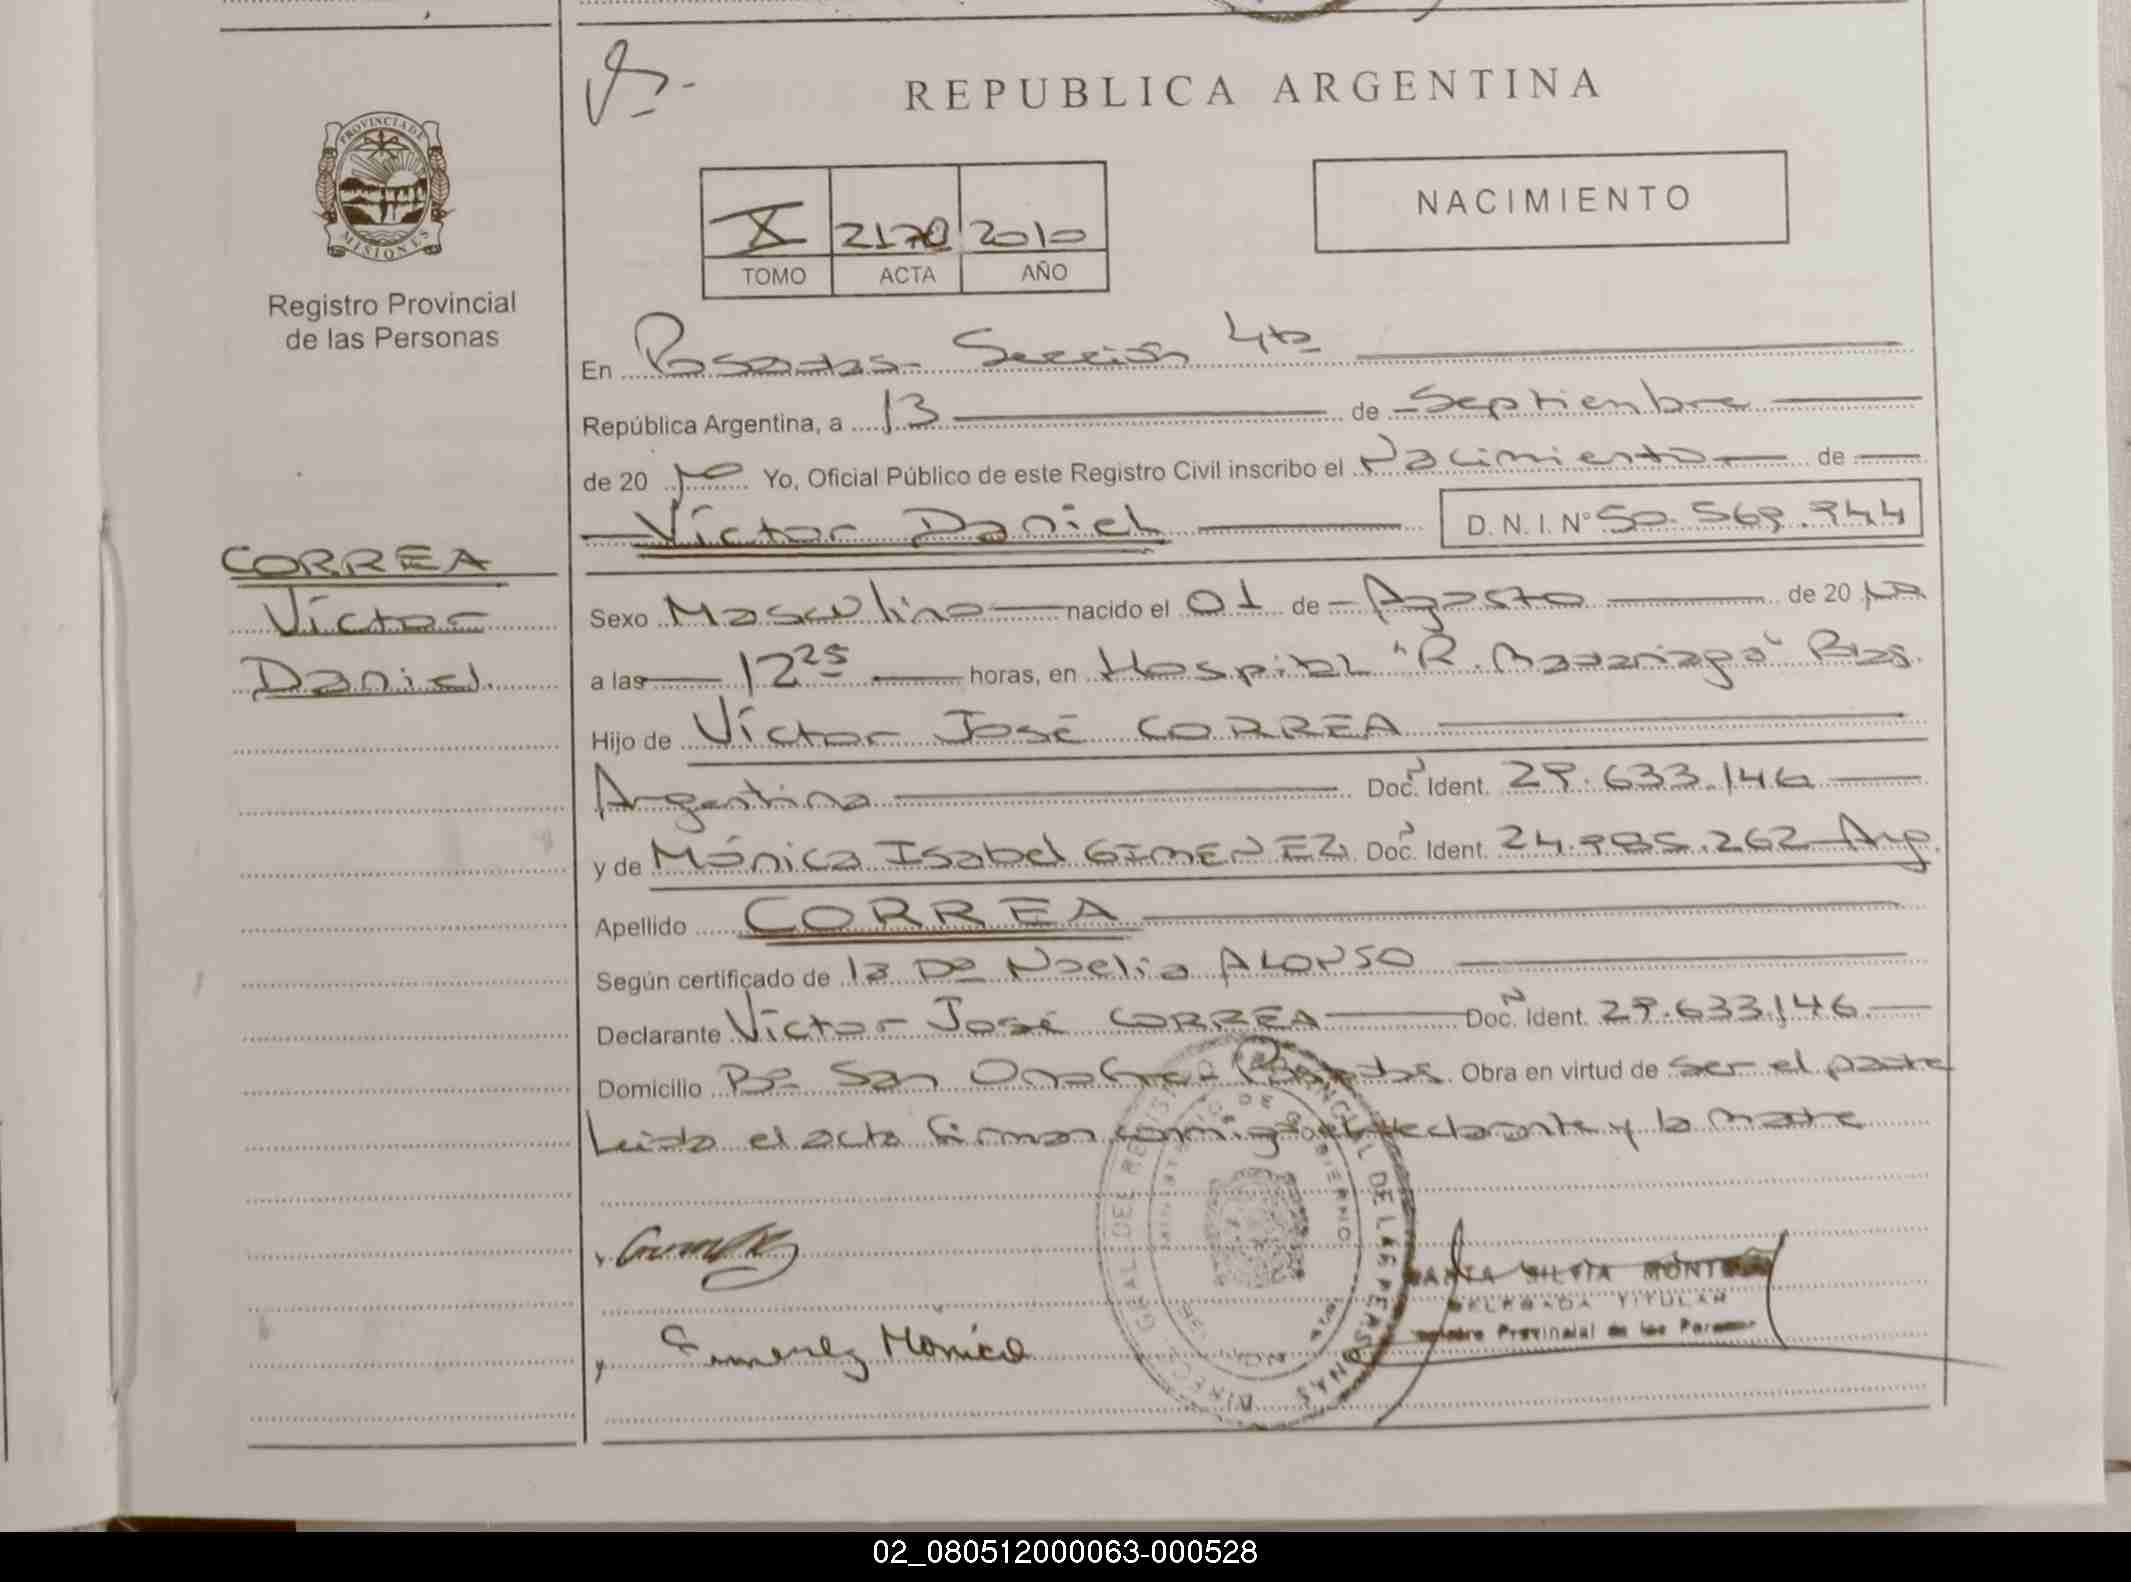 REPUBLICA ARGENTINA
PROVINCIA DE
MISIONES
Registro Provincial
de las Personas
X 2170 2010
TOMO ACTA AÑO
NACIMIENTO
En Posadas - Sección 4ta
República Argentina, a 13 de Septiembre
de 20 10 Yo, Oficial Público de este Registro Civil inscribo el Nacimiento de
Víctor Daniel D. N. I. Nº 50.569.744
CORREA
Víctor
Daniel.
Sexo Masculino nacido el 01 de Agosto de 20 10
a las 12 25 horas, en Hospital "R. Madariaga" Pdas.
Hijo de Víctor José CORREA
Argentina Doc. Ident. 29.633.146
y de Mónica Isabel GIMENEZ Doc. Ident. 24.985.262 Arg.
Apellido CORREA
Según certificado de la Dra Noelia ALONSO
Declarante Víctor José CORREA Doc. Ident. 29.633.146
Domicilio Bº San Onofre - Posadas Obra en virtud de ser el padre
Leída el acta firman conmigo el declarante y la madre
DIREC. GRAL DE REGIST DE LAS PERSONAS
MINISTERIO DE GOBIERNO
SILVIA
DELEGADA TITULAR
Provincial de las
Gimenez Mónica
02_080512000063-000528